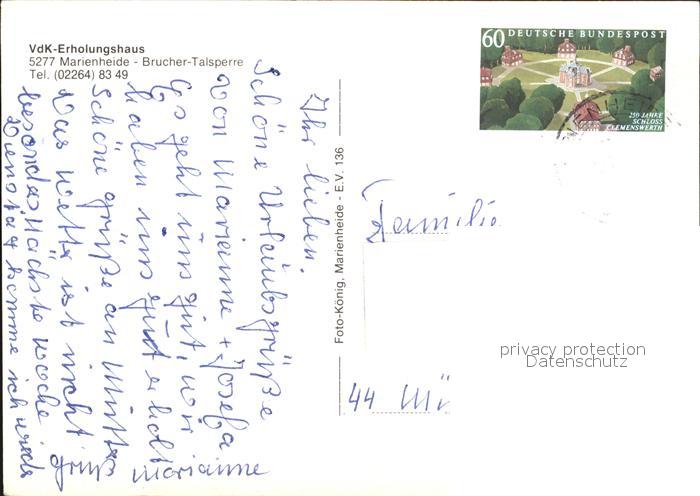 VdK-Erholungshaus
5277 Marienheide - Brucher-Talsperre
Tel. (02264) 83 49
60 DEUTSCHE BUNDESPOST
250 JAHRE
SCHLOSS
CLEMENSWERTH
Ihr lieben.
Schöne Urlaubsgrüße
von Marianne + Josefa
Es geht uns gut, wir
haben uns gut erholt
Schöne grüße an Mutter
Das Wetter ist nicht
besonders Nächste Woche
Dienstag komme ich
gruß Marianne
Foto-König, Marienheide - E.V. 136
Familie
44 Mü
privacy protection
Datenschutz